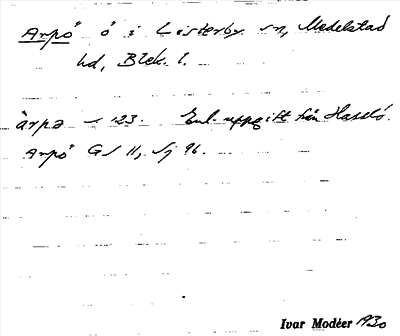 Arpö ö i Listerby sn, Medelstad
hd, Blek. l.
årpə ~ 123. Enl. uppgift från Hasslö.
Arpö GS 11, Sj 96.
Ivar Modéer 1930